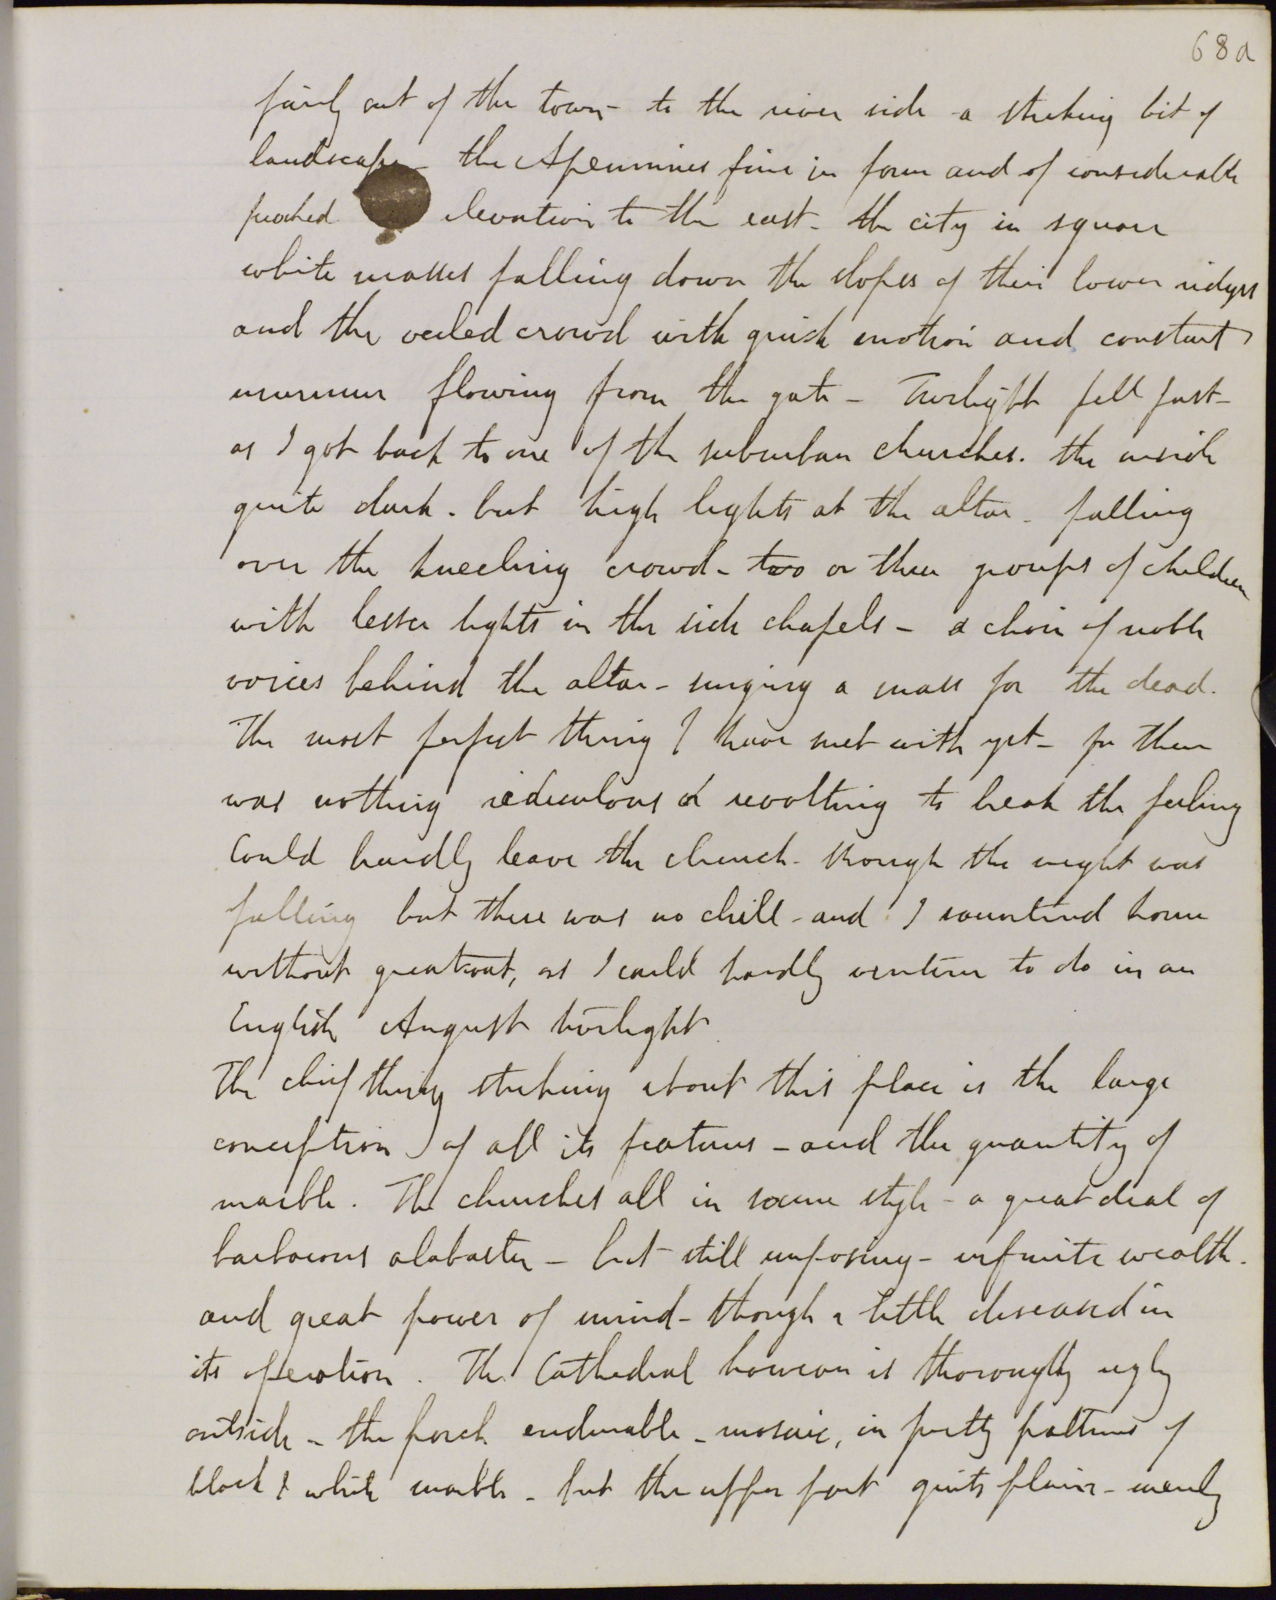 68a
fairly out of the town - to the river side - a striking bit of
landscape - the Apennines fine in form and of considerable
peaked elevation to the east - the city in square
white masses falling down the slopes of their lower ridges
and the veiled crowd with quick motion and constant
murmur flowing from the gate - Twilight fell fast -
as I got back to one of the suburban churches. the inside
quite dark. but high lights at the altar - falling
over the kneeling crowd - two or three groups of children
with lesser lights in the side chapels - a choir of noble
voices behind the altar - singing a mass for the dead.
The most perfect thing I have met with yet - for there
was nothing ridiculous or revolting to break the feeling
Could hardly leave the church - though the night was
falling but there was no chill - and I sauntered home
without greatcoat, as I could hardly venture to do in an
English August twilight
The chief thing striking about this place is the large
conception of all its features - and the quantity of
marble. The churches all in same style - a great deal of
barbarous alabaster - but still imposing - infinite wealth -
and great power of mind - though a little diseased in
its operation. The Cathedral however is thoroughly ugly
outside - the porch endurable - mosaic, in pretty patterns of
black & white marble - but the upper part quite plain - merely